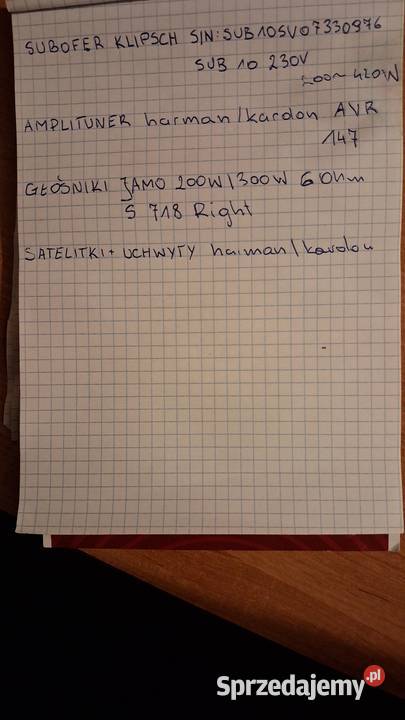 SUBOFER KLIPSCH S/N: SUB10SV07330976
SUB 10 230V
200~420W
AMPLITUNER harman/kardon AVR
147
GŁOŚNIKI JAMO 200W/300W 6 Ohm
S 718 Right
SATELITKI + UCHWYTY harman/kardon
Sprzedajemy.pl